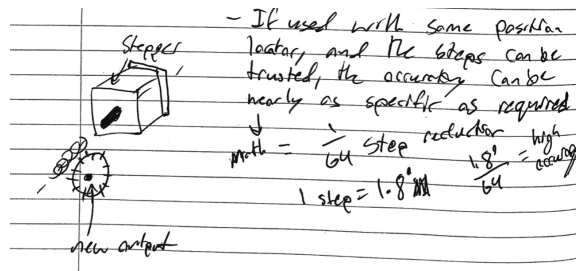 Stepper
- If used with same position
locator, and the steps can be
trusted, the accuracy can be
nearly as specific as required
math = 1/64 step reduction
1 step = 1.8°
1.8°/64 = high accuracy
new output